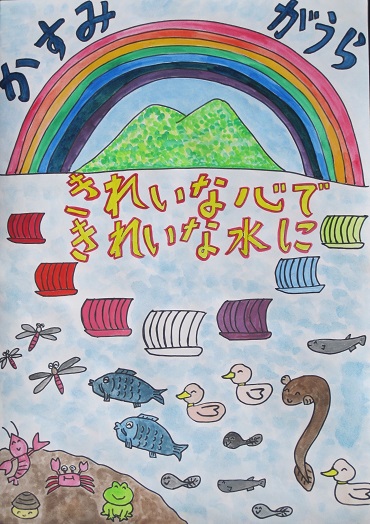 かすみがうら
きれいな心で
きれいな水に